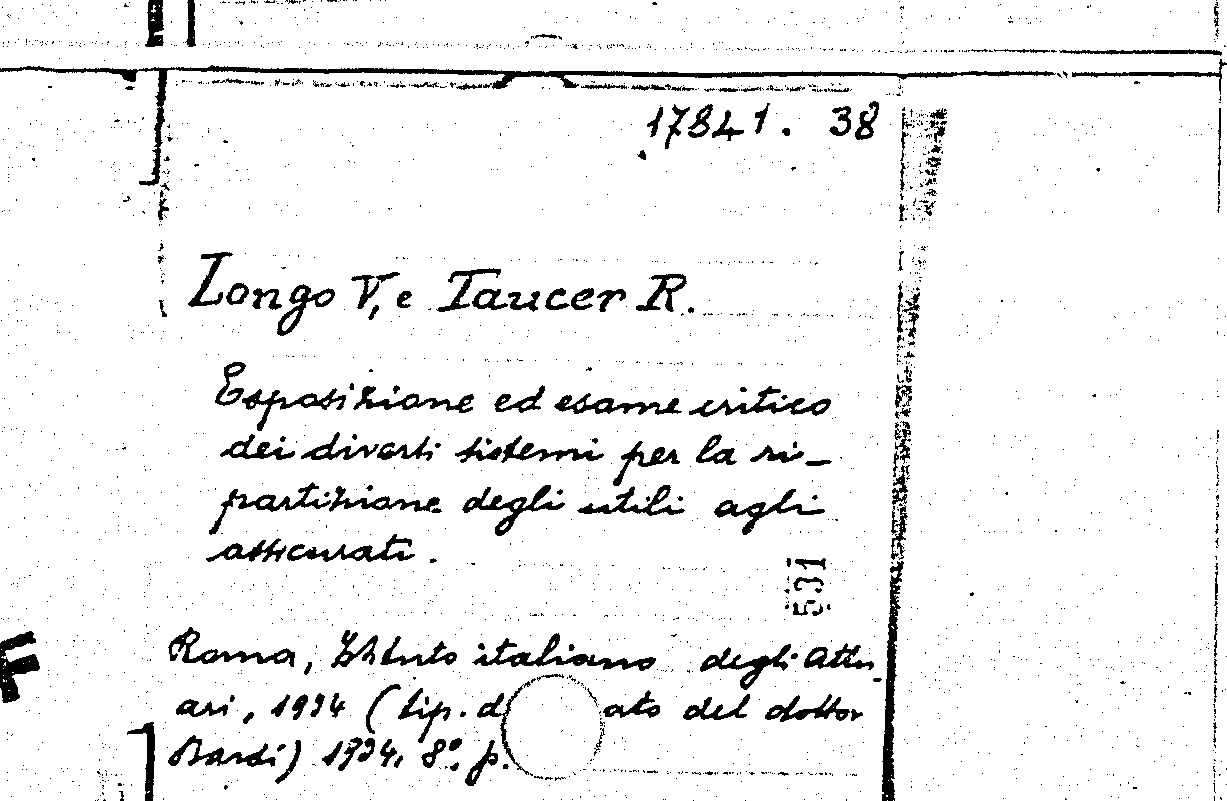 17841. 38
Longo V, e Taucer R.
Esposizione ed esame critico
dei diversi sistemi per la ri-
partizione degli utili agli
assicurati.
531
Roma, Istituto italiano degli Attu-
ari, 1934 (tip. d ato del dottor
Bardi) 1934, 8°. p.
F